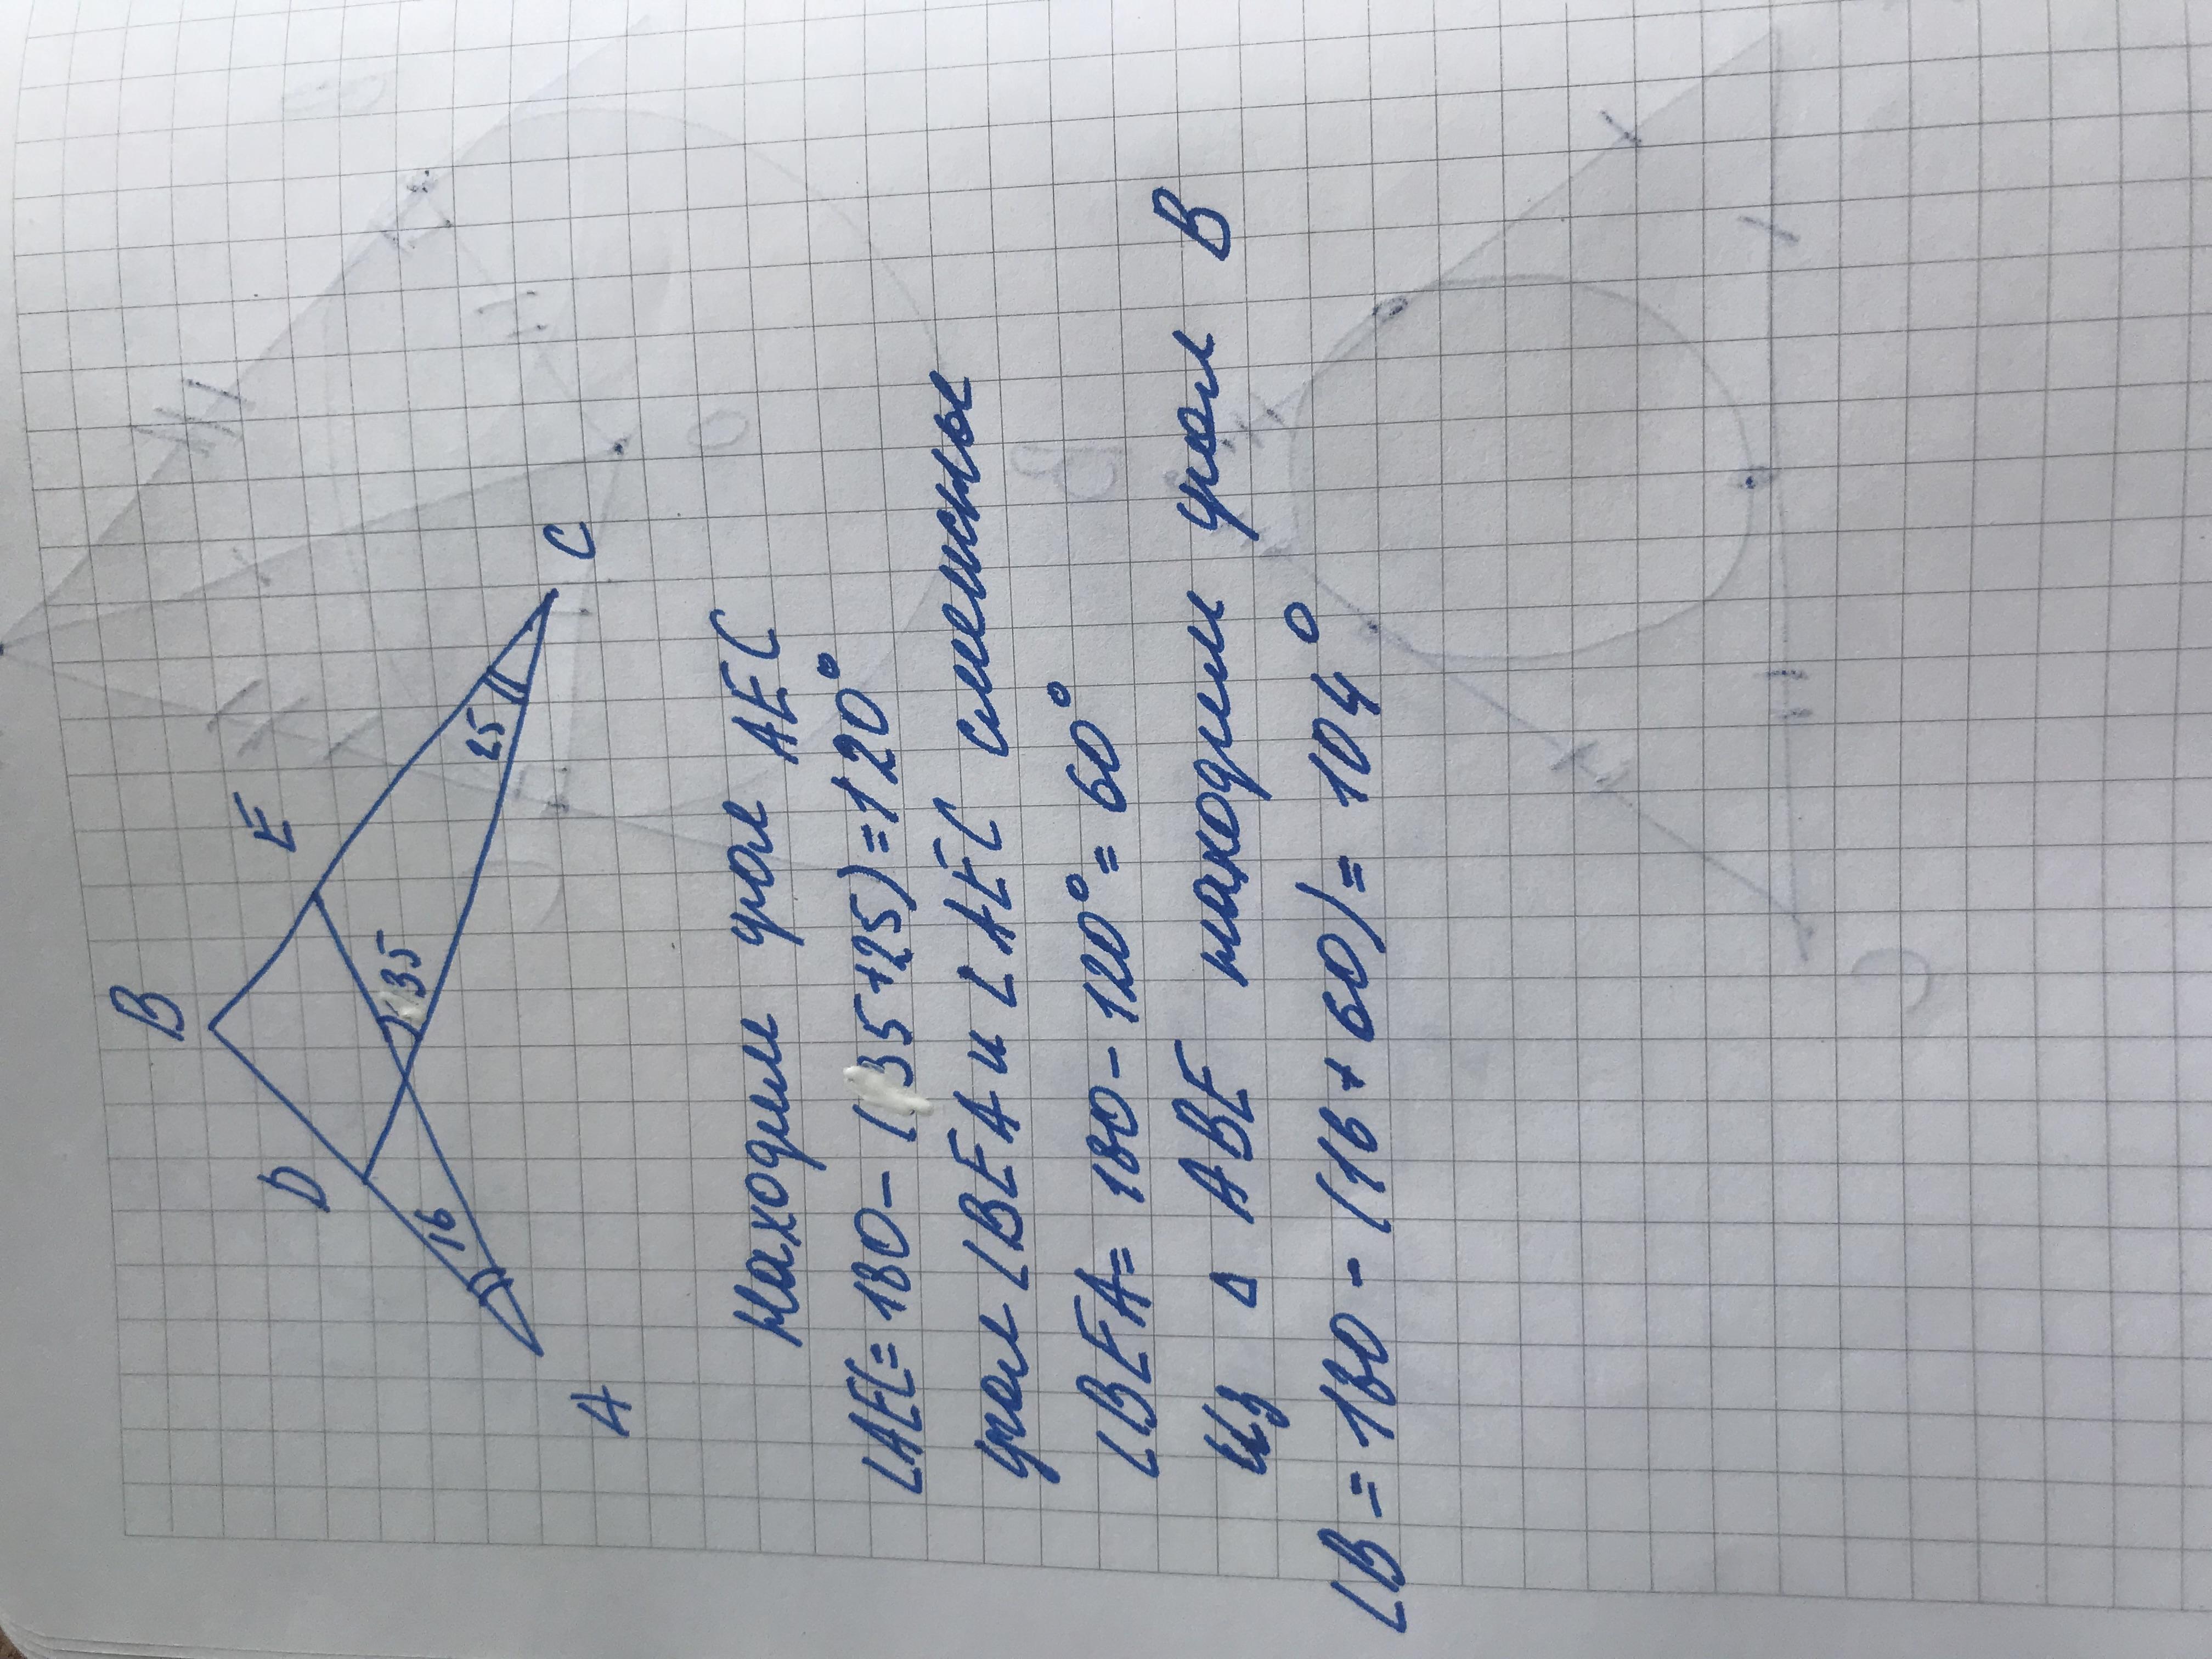 B
E
D
35
25
16
C
A
Находим угол AEC
∠AEC=180-(35+25)=120°
угол ∠BEA и ∠AEC смежны
∠BEA=180-120°=60°
Из △ ABE находим угол B
∠B=180-(16+60)=104°